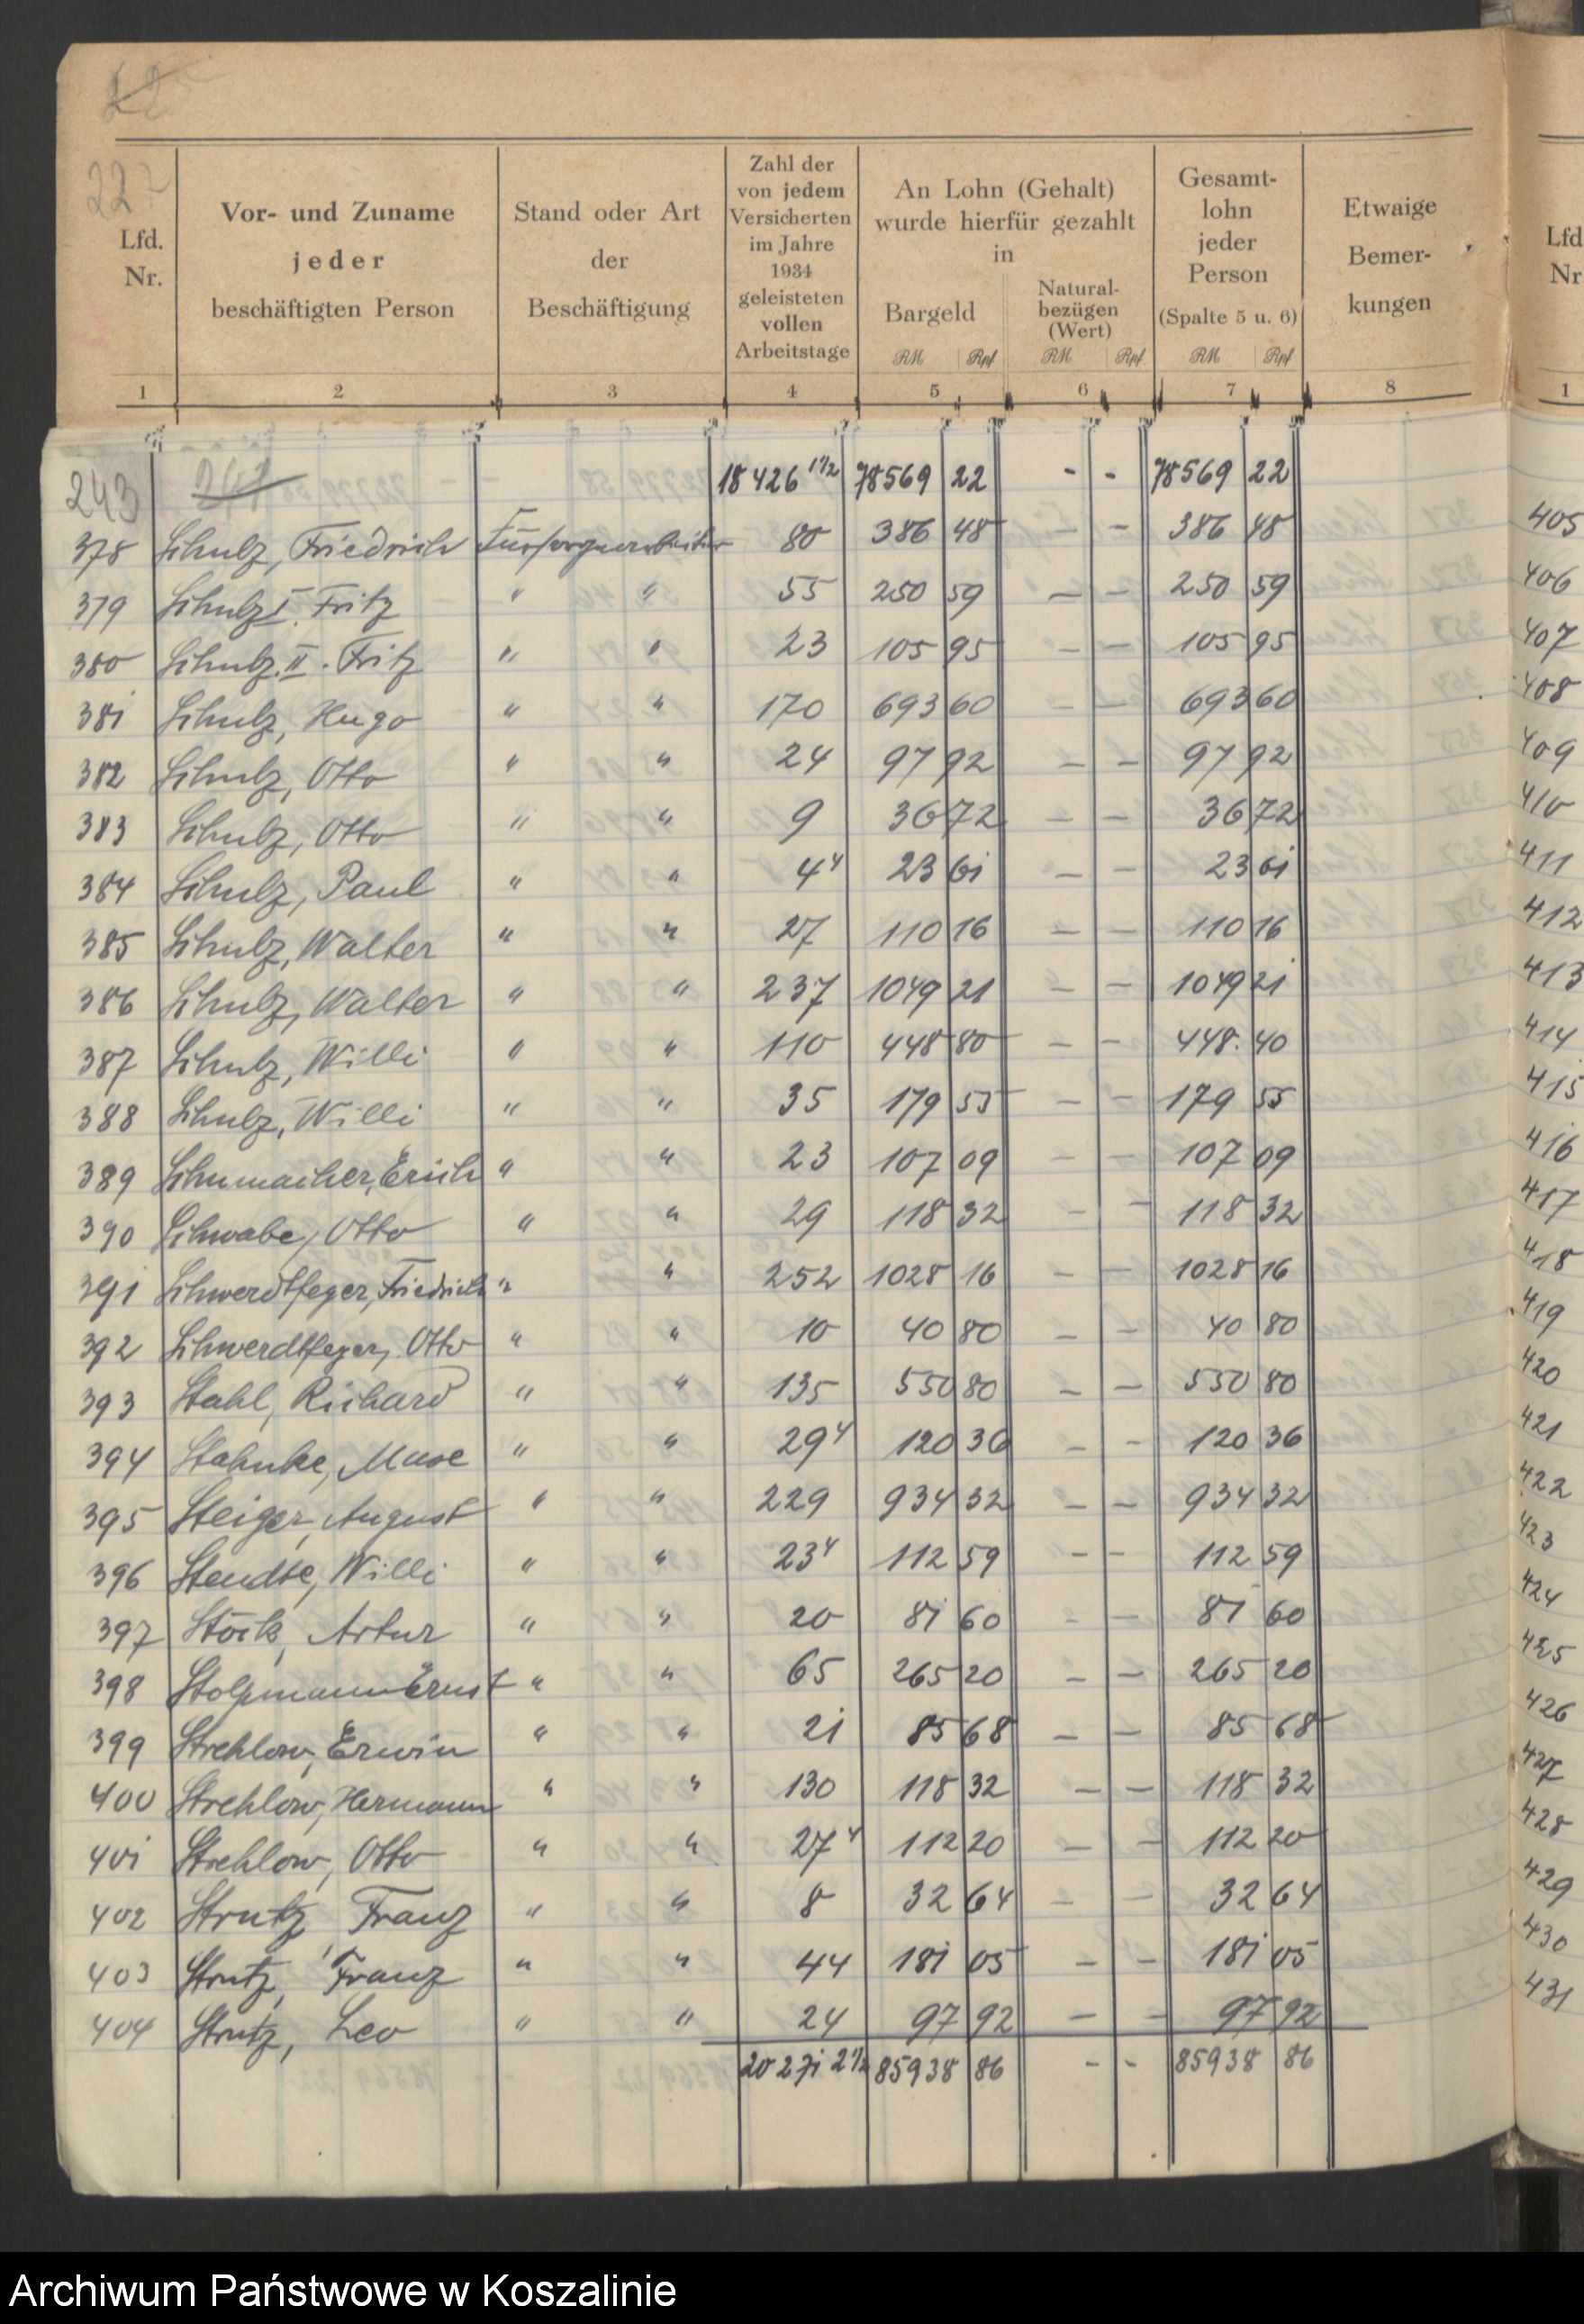 227
Lfd. Nr.
Vor- und Zuname jeder beschäftigten Person
Stand oder Art der Beschäftigung
Zahl der von jedem Versicherten im Jahre 1934 geleisteten vollen Arbeitstage
An Lohn (Gehalt) wurde hierfür gezahlt in
Bargeld RM Rpf
Naturalbezügen (Wert) RM Rpf
Gesamtlohn jeder Person (Spalte 5 u. 6) RM Rpf
Etwaige Bemerkungen
Lfd Nr
1 2 3 4 5 6 7 8 1
243 18426 1 1/2 78569 22 - - 78569 22
378 Schulz, Friedrich Fürsorgearbeiter 80 386 48 — — 386 48 405
379 Schulz I. Fritz " " 55 250 59 — — 250 59 406
380 Schulz. II. Fritz " " 23 105 95 — — 105 95 407
381 Schulz, Hugo " " 170 693 60 — — 693 60 408
382 Schulz, Otto " " 24 97 92 — — 97 92 409
383 Schulz, Otto " " 9 36 72 — — 36 72 410
384 Schulz, Paul " " 4 4 23 61 — — 23 61 411
385 Schulz, Walter " " 27 110 16 — — 110 16 412
386 Schulz, Walter " " 237 1049 21 — — 1049 21 413
387 Schulz, Willi " " 110 448 80 — — 448. 40 414
388 Schulz, Willi " " 35 179 55 — — 179 55 415
389 Schumacher, Erich " " 23 107 09 — — 107 09 416
390 Schwabe, Otto " " 29 118 32 — — 118 32 417
391 Schwerdtfeger, Friedrich " " 252 1028 16 — — 1028 16 418
392 Schwerdtfeger, Otto " " 10 40 80 — — 40 80 419
393 Stahl, Richard " " 135 550 80 — — 550 80 420
394 Stahnke, " " 29 4 120 36 — — 120 36 421
395 Steiger, August " " 229 934 32 — — 934 32 422
396 Stendte, Willi " " 23 4 112 59 — — 112 59 423
397 Stöck, Artur " " 20 81 60 — — 81 60 424
398 Stolpmann Ernst " " 65 265 20 — — 265 20 425
399 Strehlow, Erwin " " 21 85 68 — — 85 68 426
400 Strehlow, Hermann " " 130 118 32 — — 118 32 427
401 Strehlow, Otto " " 27 4 112 20 — — 112 20 428
402 Strutz, Franz " " 8 32 64 — — 32 64 429
403 Strutz, Franz " " 44 181 05 — — 181 05 430
404 Strutz, Leo " " 24 97 92 — — 97 92 431
20271 2 1/2 85938 86 - - 85938 86
Archiwum Państwowe w Koszalinie